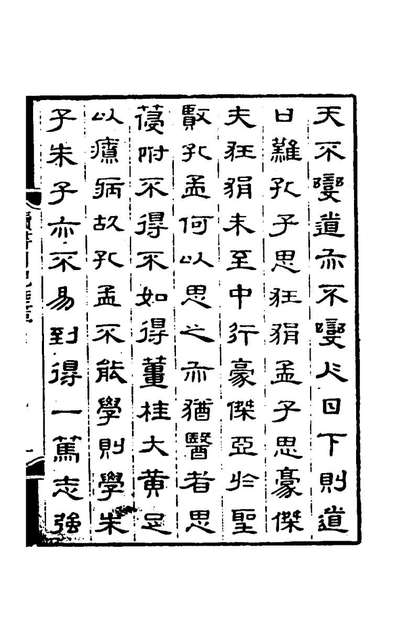 天不變道亦不變以目下則道
日難孔子思狂狷孟子思豪傑
夫狂狷未至中行豪傑亞於聖
賢孔孟何以思之亦猶醫者思
葠附不得不如得薑桂大黃足
以療病故孔孟不能學則學朱
子朱子亦不易到得一篤志強